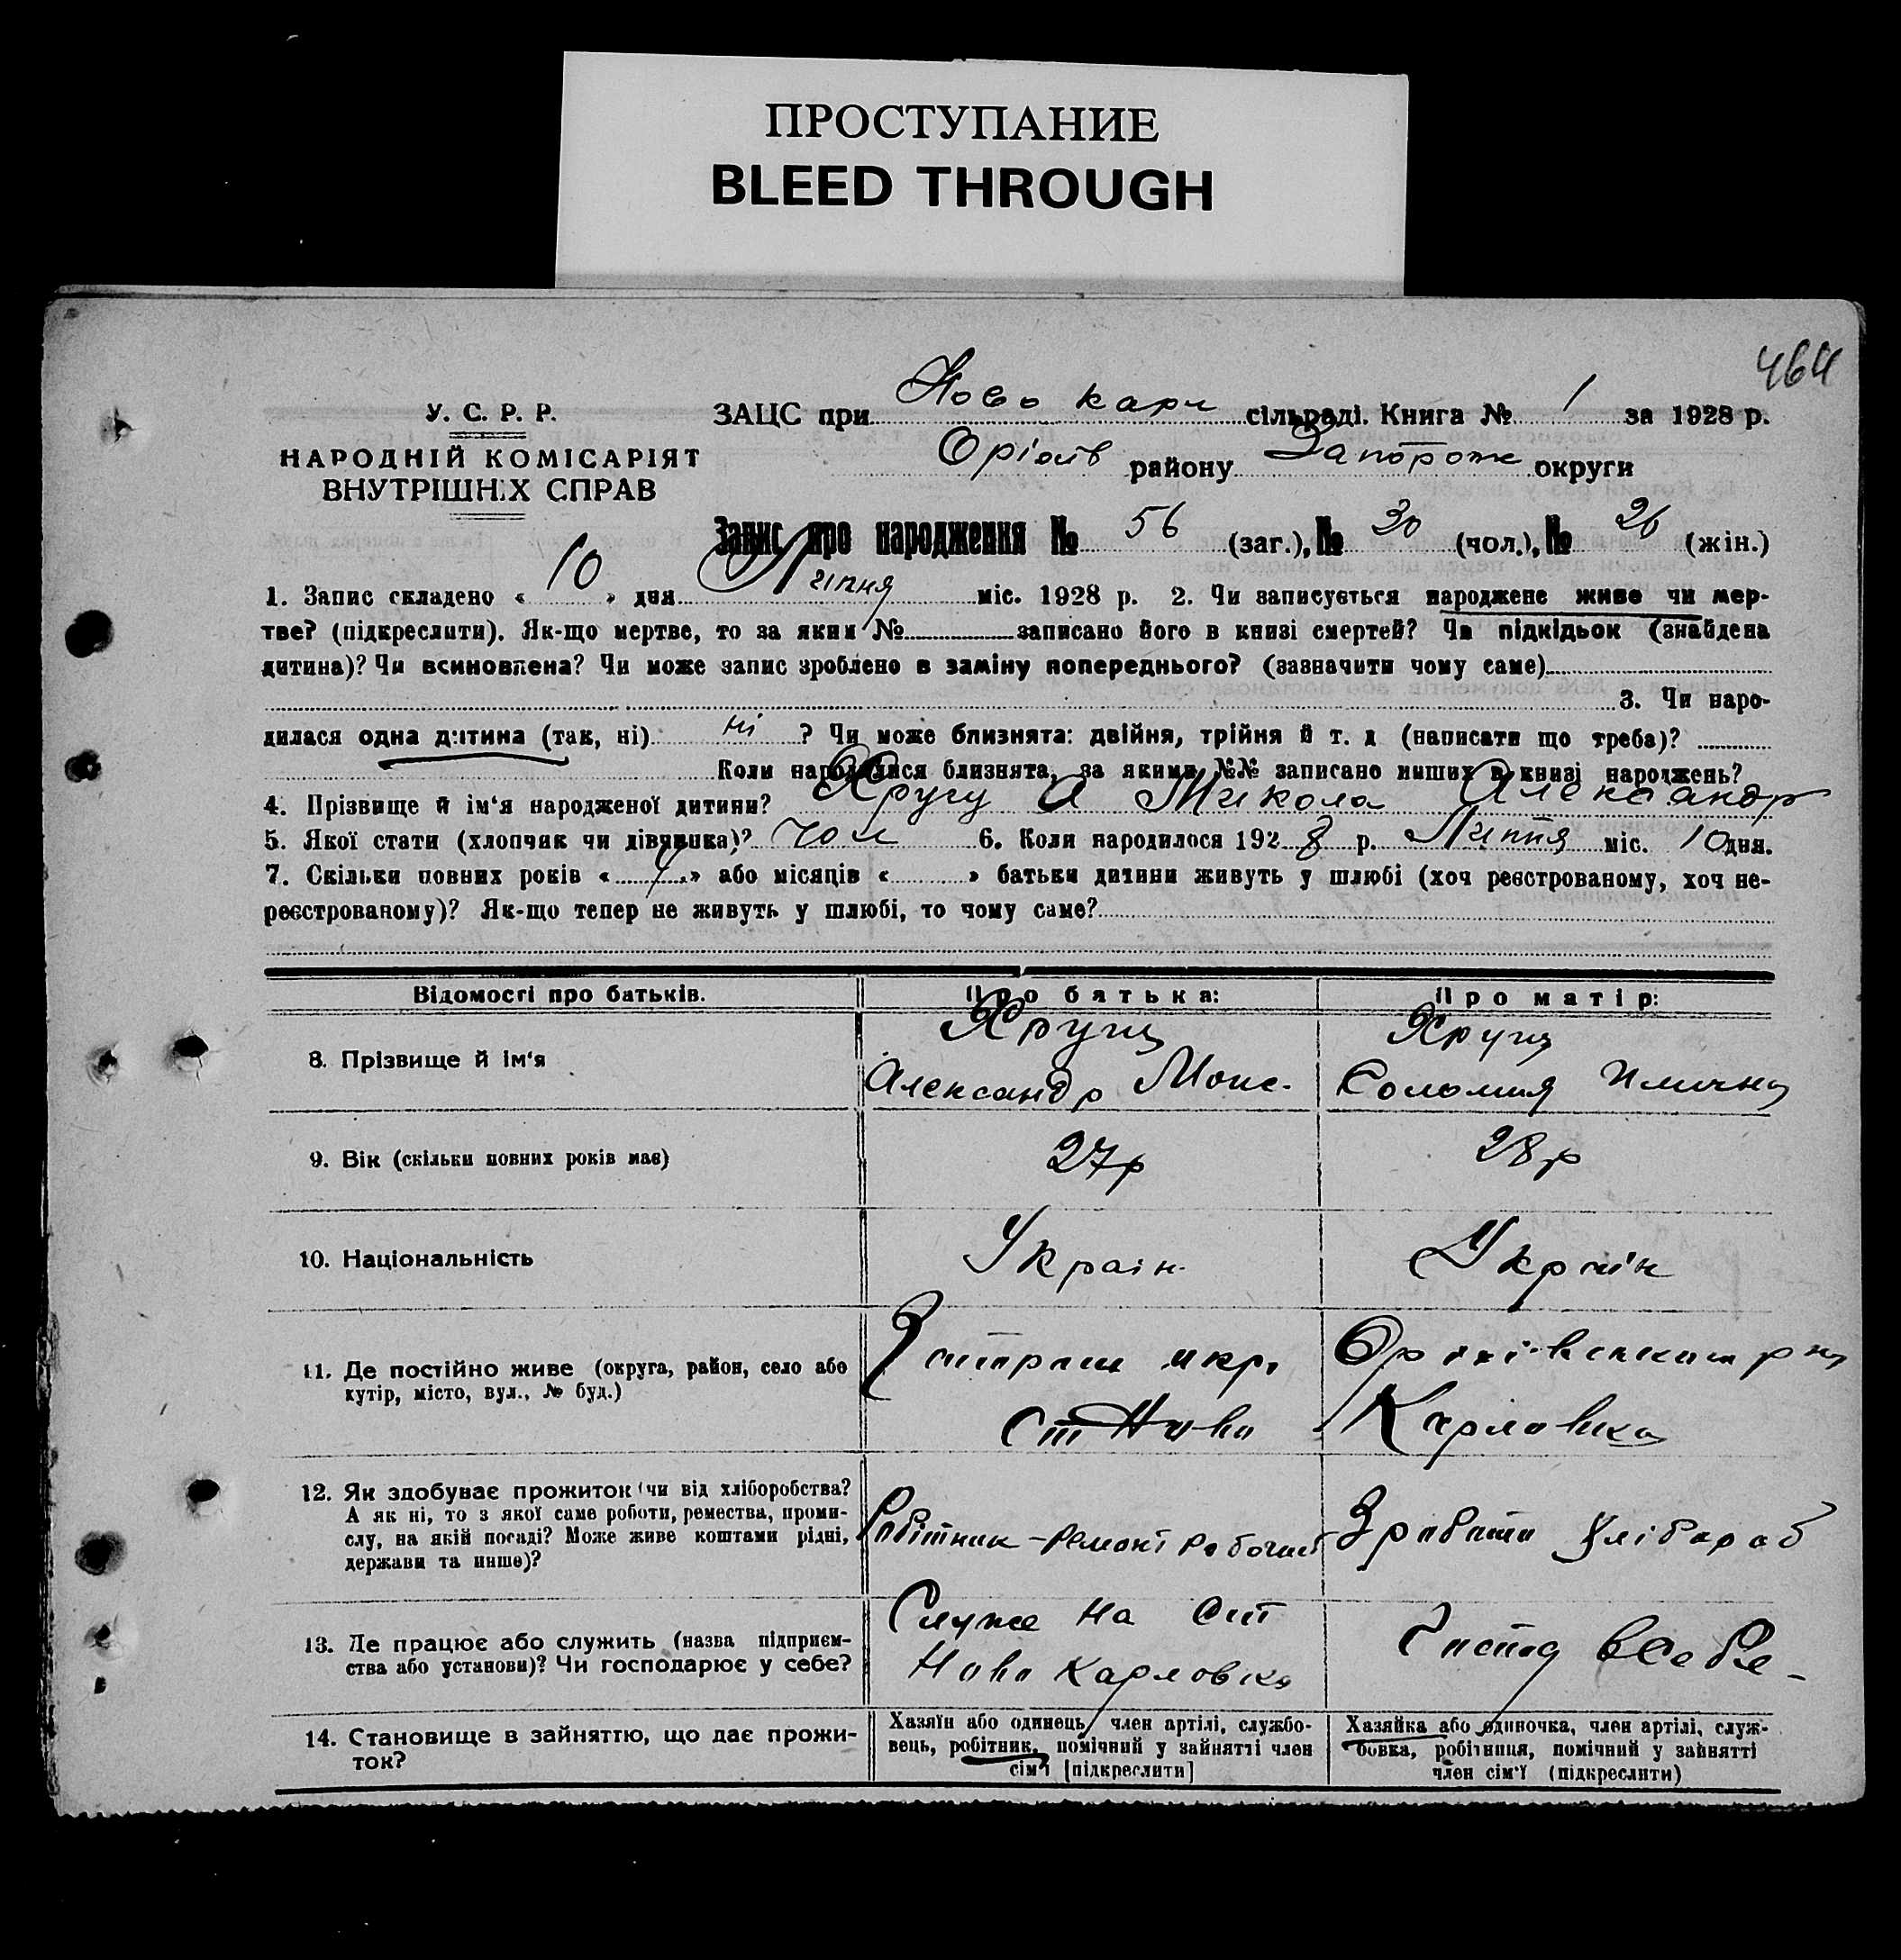 ПРОСТУПАНИЕ
BLEED THROUGH
464
У. С. Р. Р.
НАРОДНІЙ КОМІСАРІЯТ
ВНУТРІШНІХ СПРАВ
ЗАЦС при Ново карл сільраді. Книга № 1 за 1928 р.
Оріхів району Запорож округи
Запис про народження № 56 (заг.), № 30 (чол.), № 26 (жін.)
1. Запис складено « 10 » дня Липня міс. 1928 р. 2. Чи записується народжене живе чи мер-
тве? (підкреслити). Як-що мертве, то за яким № записано його в книзі смертей? Чи підкідьок (знайдена
дитина)? Чи всиновлена? Чи може запис зроблено в заміну попереднього? (зазначити чому саме)
3. Чи наро-
дилася одна дитина (так, ні) ні ? Чи може близнята: двійня, трійня й т. д (написати що треба)?
Коли народилися близнята, за якими №№ записано инших в книзі народжень?
4. Прізвище й ім‘я народженої дитини? Микола Александр
5. Якої стати (хлопчик чи дівчинка)? чол 6. Коли народилося 192 8 р. Липня міс. 10 дня.
7. Скільки повних років « » або місяців « » батьки дитини живуть у шлюбі (хоч реєстрованому, хоч не-
реєстрованому)? Як-що тепер не живуть у шлюбі, то чому саме?
Відомості про батьків.
Про батька:
Про матір:
8. Прізвище й ім‘я
Александр
Соломия
9. Вік (скільки повних років має)
27р
28р
10. Національність
Украін.
Украін
11. Де постійно живе (округа, район, село або
кутір, місто, вул., № буд.)
ст Ново Карловка
12. Як здобуває прожиток (чи від хліборобства?
А як ні, то з якої саме роботи, ремества, проми-
слу, на якій посаді? Може живе коштами рідні,
держави та инше)?
Робітник - Ремонт рабочий
З работи хлібороб
13. Де працює або служить (назва підприєм-
ства або установи)? Чи господарює у себе?
Служе на ст
Ново Карловка
Господ в себе -
14. Становище в зайняттю, що дає прожи-
ток?
Хазяїн або одинець, член артілі, службо-
вець, робітник, помічний у зайнятті член
сім‘ї [підкреслити]
Хазяйка або одиночка, член артілі, служ-
бовка, робітниця, помічний у зайнятті
член сім‘ї (підкреслити)